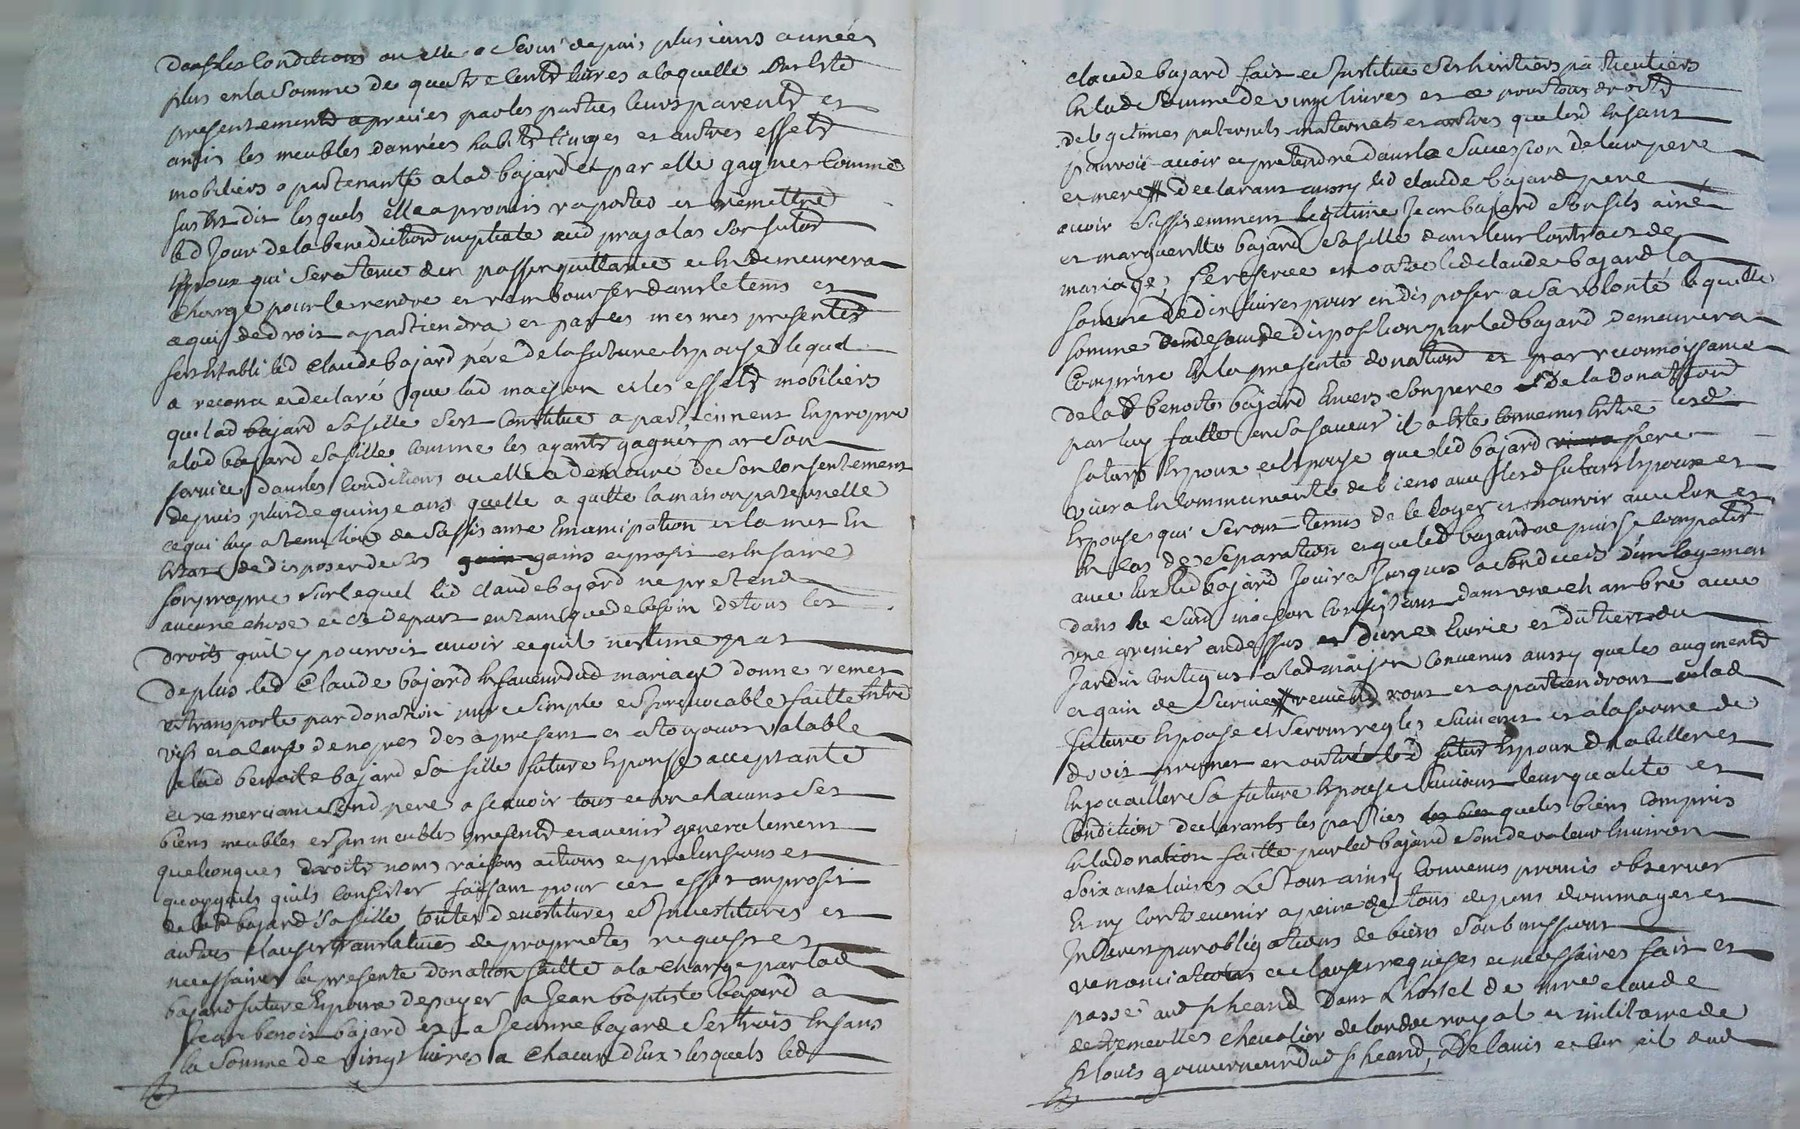 dans les Conditions ou elle a servi depuis plusieurs années
plus en la somme de quatre cents livres a laquelle ont été
presentement apreciés par les parties leurs parents et
amis les meubles danrées habits linges et autres effets
mobiliers apartenants a lad bajard et par elle gagnes comme
sus est dit lesquels elle a promis raporter et remettre
led jour de la benediction nuptiale aud son futur
Epoux qui sera tenu d'en passer quittance et en demeurera
chargé pour le rendre et rembourser dans le tems et
a qui de droit apartiendra et par ces mesmes presentes
s'est etabli led Claude bajard père de la future Epouse lequel
a reconu et declaré que lad maison et les effets mobiliers
que lad bajard sa fille s'est Constitué apartiennent en propre
a lad bajard sa fille comme les ayants gagnés par son
service dans les Conditions ou elle a demeuré de son Consentement
depuis plus de quinze ans quelle a quitté la maison paternelle
ce qui luy a tenu lieu de suffisante Emancipation et la met en
Etat de disposer de ses gains et profit et en faire
son propre sur lequel led Claude bajard ne pretend
aucune chose et ce depart en tant que de besoin de tous les
droits quil y pourroit avoir et quil n'estime pas
de plus led Claude bajard en faveur dud mariage donne remet
et transporte par donation pure simple et irrevocable faitte entre
vifs et a cause de nopces des a present et a toujours valable
a lad benoite bajard sa fille future Epouse acceptante
et remerciant sond pere a scavoir tous et un chacuns ses
biens meubles et immeubles presents et avenir generalement
quelconques droits noms raisons actions et pretensions et
quoyquils puis consister faisant pour cet effet au profit
de lad bajard sa fille toutes devestitures et Investitures et
autres clauses translatives de proprietes requises et
necessaires la presente donation faitte a la charge par lad
bajard future Epouse de payer a Jean baptiste bajard a
Jean benoit bajard et a Jeanne bajard ses trois Enfans
la somme de vingt livres a chacun d'eux lesquels led
Claude bajard fait et Institue ses heritiers particuliers
en lad somme de vingt livres et ce pour tous droits
de legitimes paternels maternels et autres que lesd Enfans
pourroit avoir et pretendre dans la succession de leur pere
et mere declarant aussy led Claude bajard pere
avoir suffisemment legitimé Jean bajard son fils ainé
et marguerite bajard sa fille dans leur Contract de
mariage, se reserve en outre led Claude bajard la
somme de dix livres pour en disposer a sa volonté laquelle
somme de disposition par led bajard demeurera
Comprise en la presente donation et par reconnoissance
de lad benoite bajard Envers son pere de la donation
par luy faitte en sa faveur il a été Convenus Entre lesd
futurs Epoux et Epouse que led bajard pere
vivra en communauté de biens avec lesd futurs Epoux et
Epouse qui seront tenus de le loger et nourrir avec Eux et
en cas de separation et que led bajard ne puisse compatir
avec Eux led bajard Jouira Jusques a son deces d'un logement
dans la maison Consistant dans une chambre avec
une grenier au dessus d'une Ecurie et du tiers du
Jardin Contigus a lad maison Convenus aussy que les augments
et gain de survie viendront et apartiendront a lad
future Epouse et seront regles suivant et a la forme de
droit promet en outre led futur Epoux d'habiller et
Enjoualler sa future Epouse suivant leur qualité et
Condition declarants les parties que les biens Compris
en la donation faitte par led bajard sont de valeur Environ
soixante livres Le tout ainsy Convenus promis observer
et ny Contrevenir a peine de tous depens dommages et
Interest par obligations de biens soubmissions
renonciations et clauses requises et necessaires fait et
passé aud St heand dans L'hotel de mre claude
de tremeolles chevalier de l'ordre royal et militaire de
St louis gouverneur dud St heand, De lavis et conseil aud